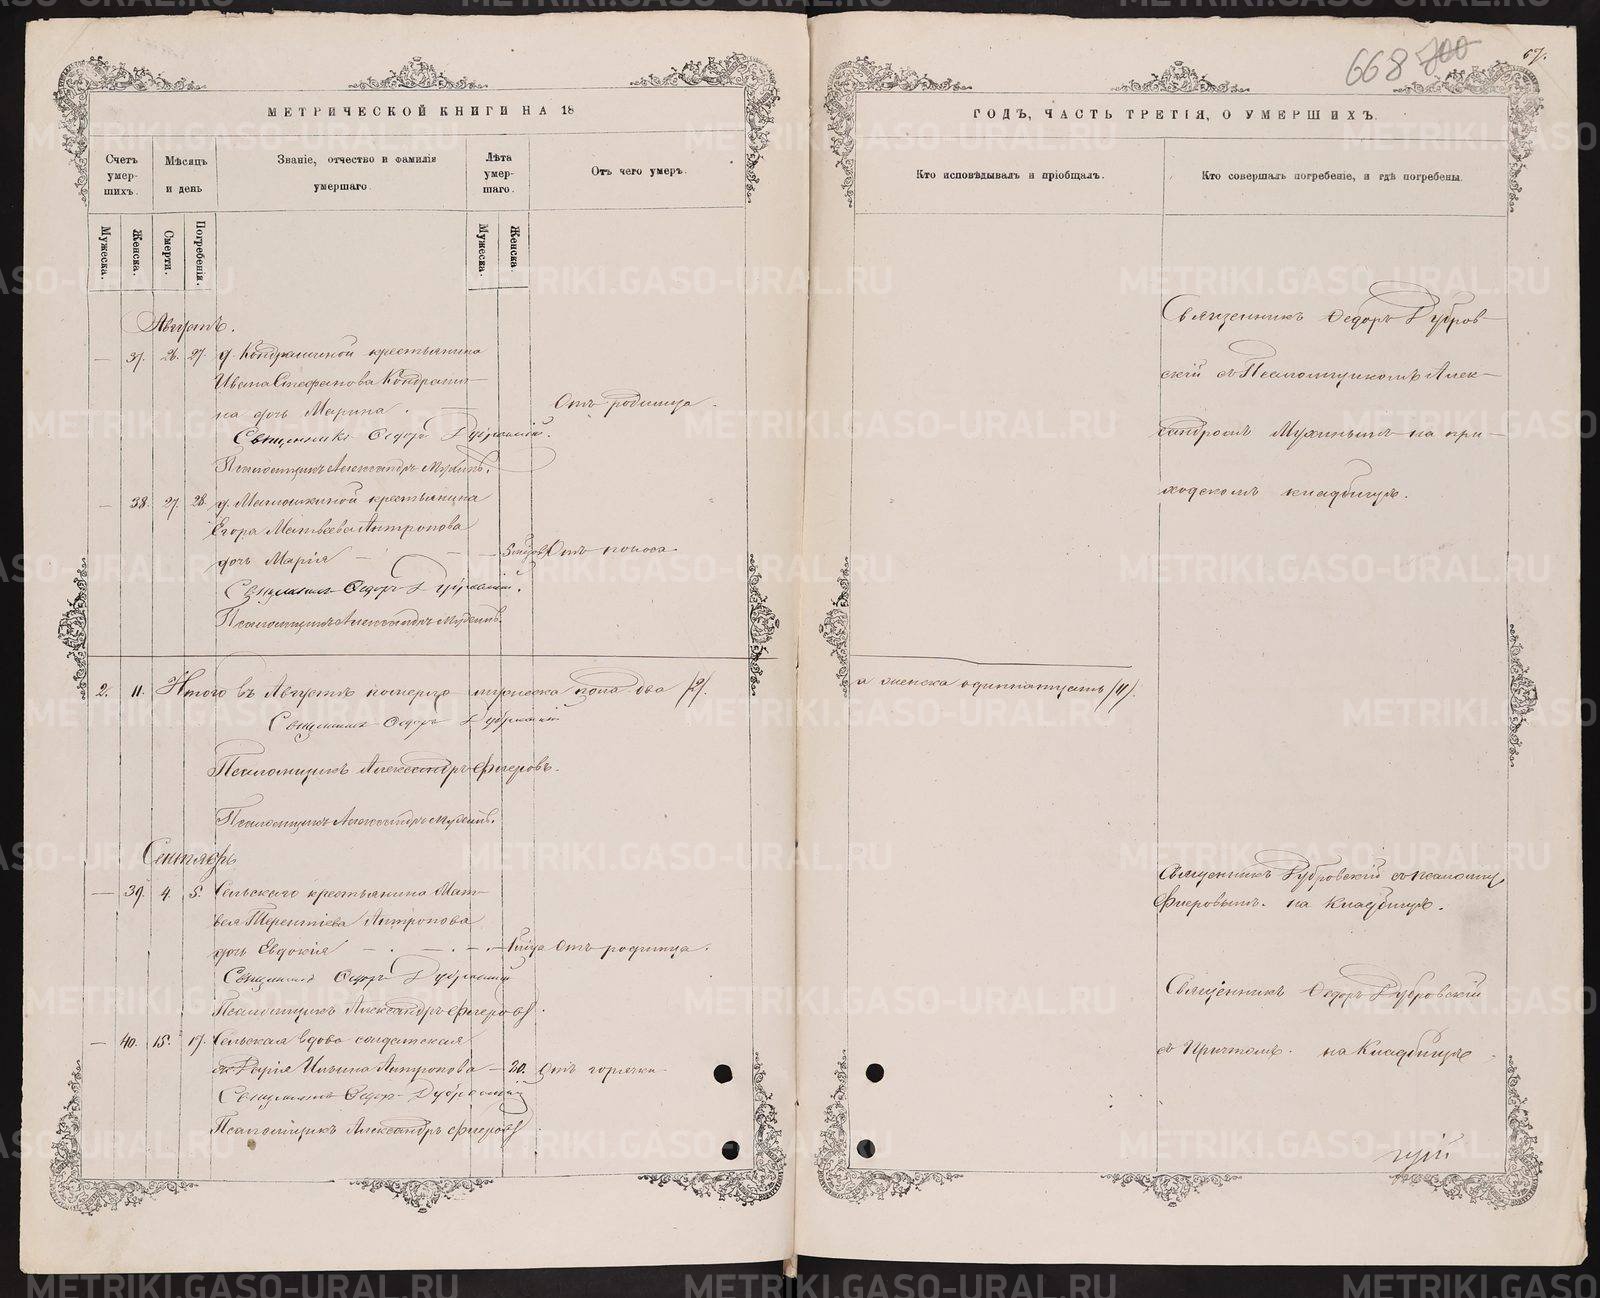 МЕТРИЧЕСКОЙ КНИГИ НА 18
Счетъ умер-шихъ.
Мѣсяцъ и день
Званіе, отчество и фамилія умершаго.
Лѣта умер-шаго.
Отъ чего умеръ.
Мужеска.
Женска.
Смерти.
Погребенія.
Мужеска.
Женска.
Августъ.
— 37. 26. 27. д. Кондрашиной крестьянина
Ивана Стефанова Кондраши-
на дочь Марина. — Отъ родимца.
Священникъ Ѳедоръ Дубровскій.
Псаломщикъ Александръ Мухинъ.
— 38. 27. 28. д. Матюшкиной крестьянина
Егора Матвѣева Антропова
дочь Марія — — 5 Отъ поноса
Священникъ Ѳедоръ Дубровскій.
Псаломщикъ Александръ Мухинъ.
2. 11. Итого въ Августѣ померло мужеска пола два /2/.
Священникъ Ѳедоръ Дубровскій
Псаломщикъ Александръ Флеровъ.
Псаломщикъ Александръ Мухинъ.
Сентябрь
— 39. 4. 5. Сельскаго крестьянина Мат-
вея Терентіева Антропова
дочь Евдокія — . — . — . — Отъ родимца.
Священникъ Ѳедоръ Дубровскій
Псаломщикъ Александръ Флеровъ.
— 40. 15. 17. Сельская вдова солдатская
Дарія Ильина Антропова — 20. Отъ горячки
Священникъ Ѳедоръ Дубровскій
Псаломщикъ Александръ Флеровъ
668 700
67.
ГОДЪ, ЧАСТЬ ТРЕТІЯ, О УМЕРШИХЪ.
Кто исповѣдывалъ и пріобщалъ.
Кто совершалъ погребеніе, и гдѣ погребены.
Священникъ Ѳедоръ Дубров-
скій съ Псаломщикомъ Алек-
сандромъ Мухинымъ на при-
ходскомъ кладбищѣ.
и женска одиннатцать /11/.
Священникъ Дубровскій съ псаломщ
Флеровымъ. на Кладбищѣ.
Священникъ Ѳедоръ Дубровскій
съ Причтомъ. на Кладбищѣ
METRIKI.GASO-URAL.RU